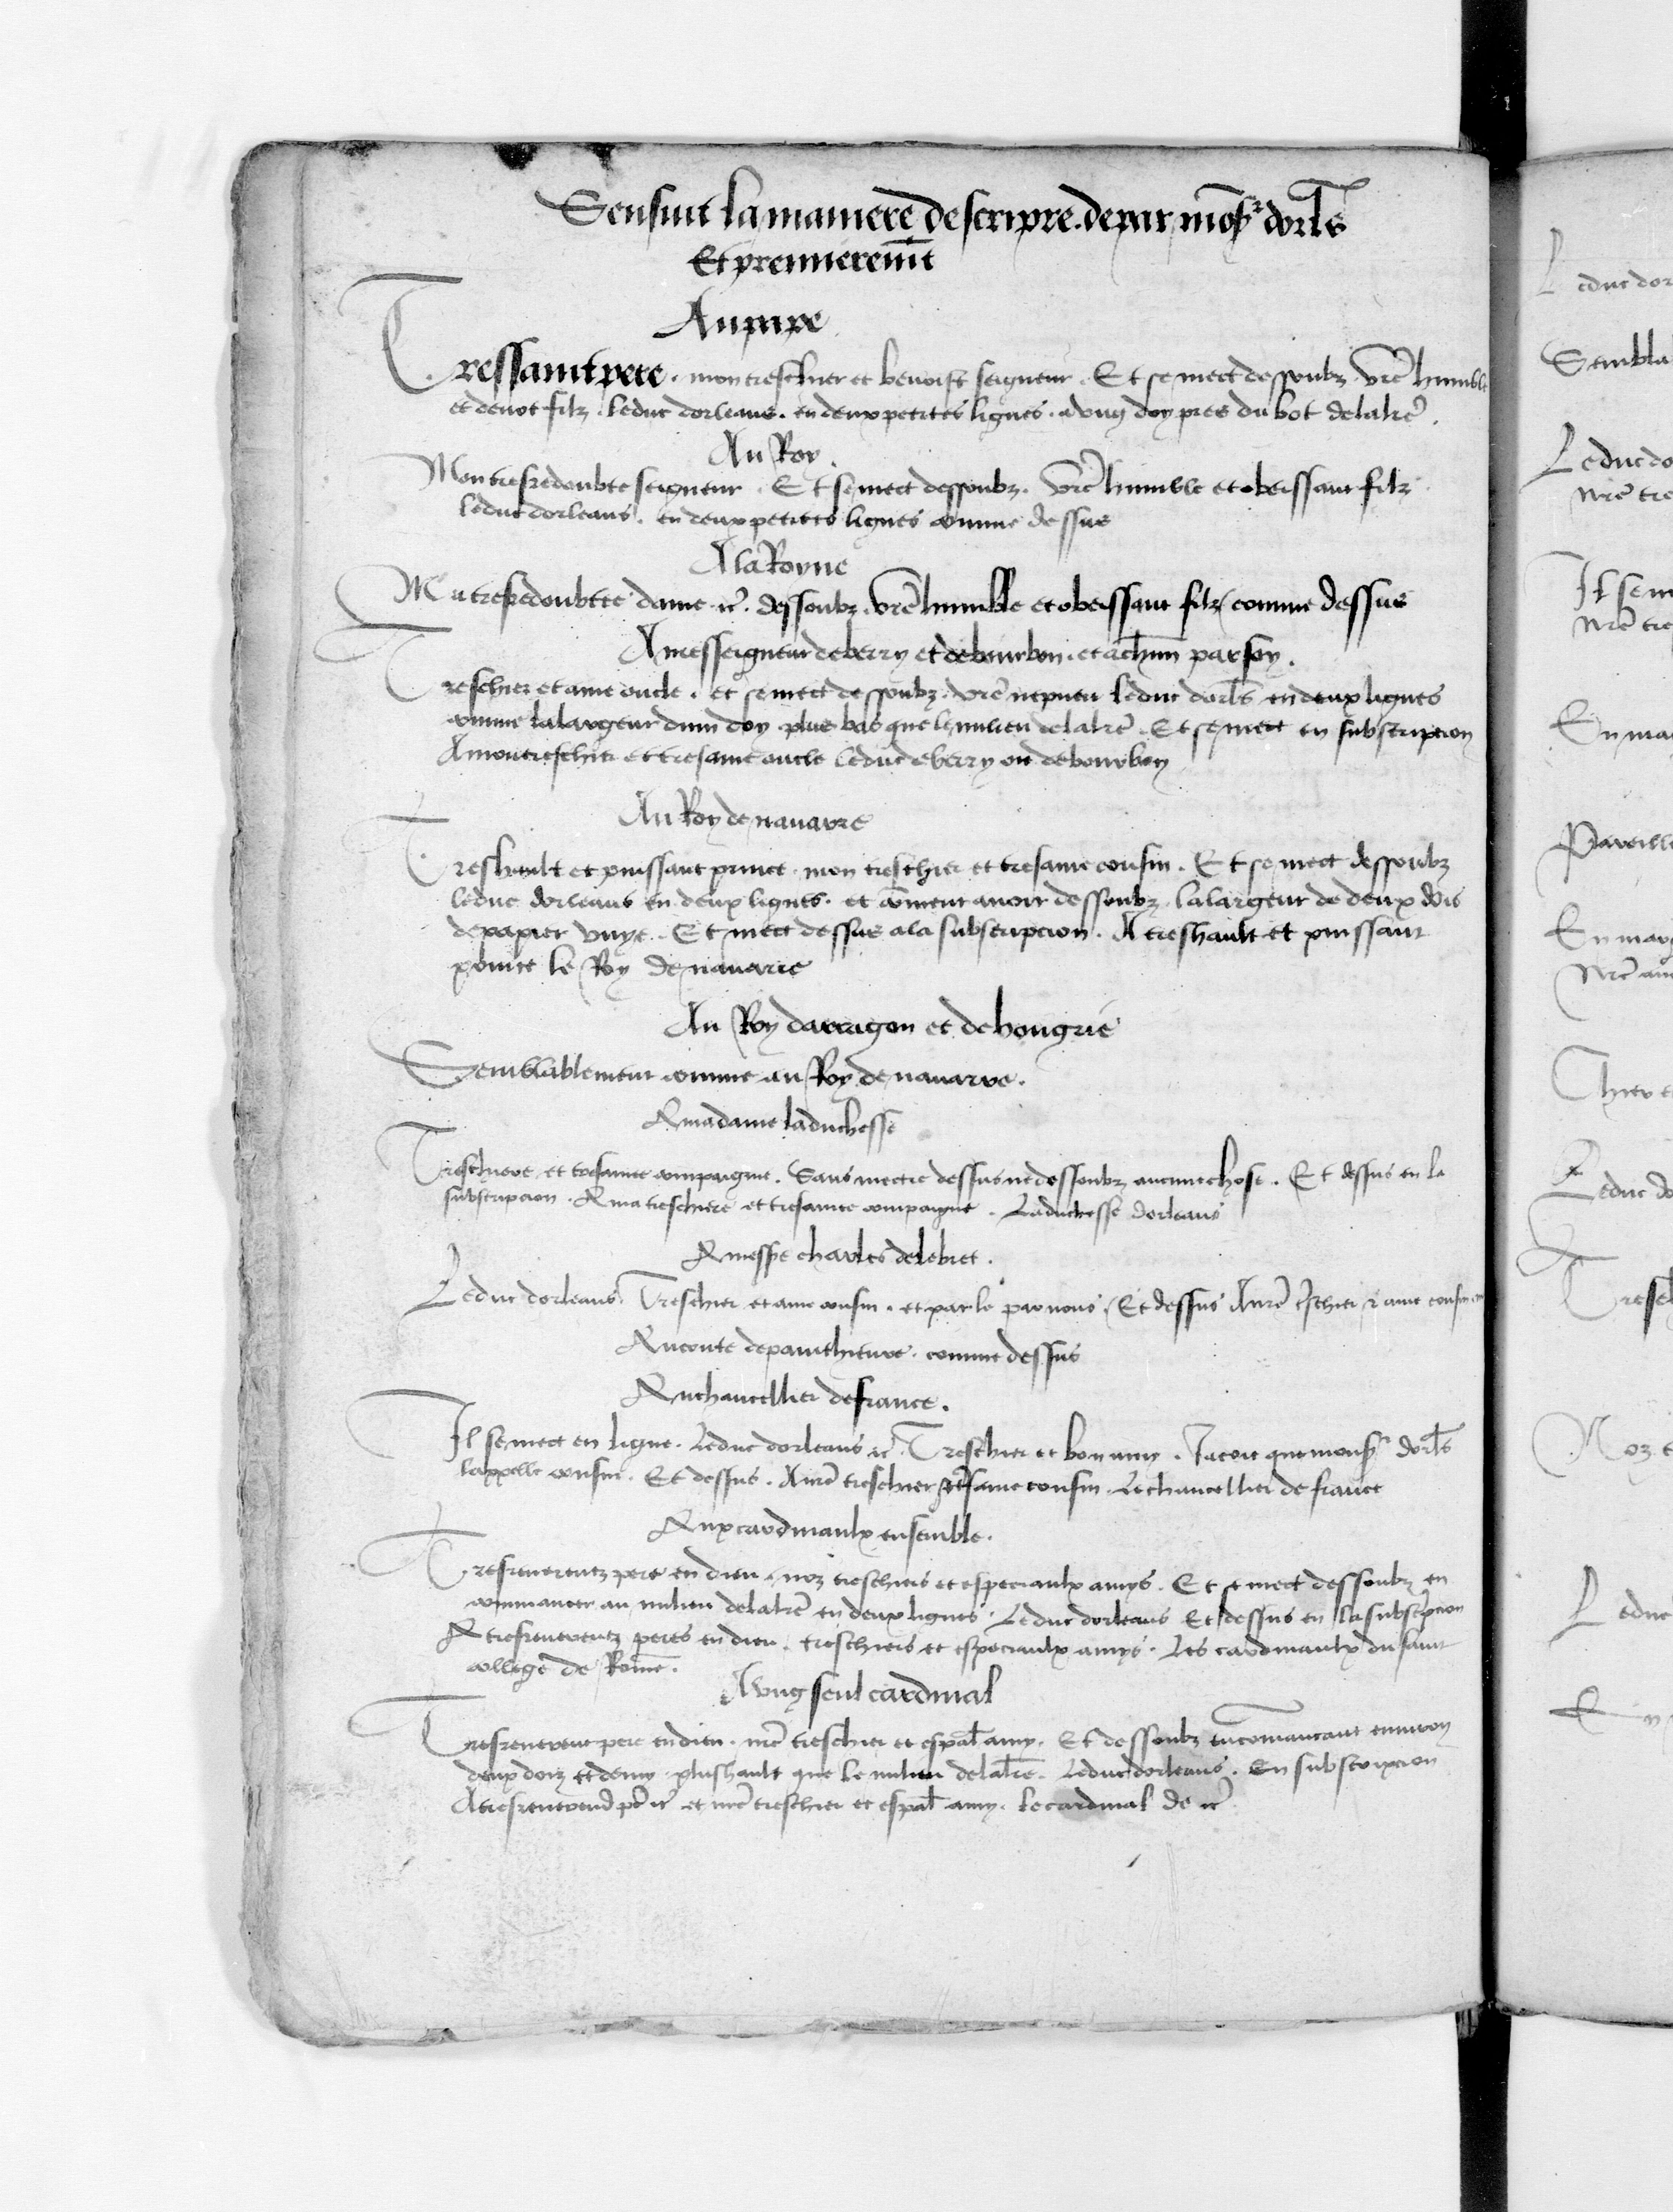 Sensuit la maniere descripre de par mons^r dorl̃s
Et premierem̃t
Au pape
Tressaint pere . mon treschier et benoist seigneur . Et se mect dessoubz vr̃e humble
et devot filz . le duc dorleans . en deux petites lignes . a ung doy pres du bot de la lr̃e .
Au Roy .
Mon tresredoubte seigneur . Et se mect dessoubz . Vr̃e humble et obeissant filz
le duc dorleans . en deux petites lignes comme dessus
A la Royne
Ma tresredoubtee dame &c̃ . dessoubz . vr̃e humble et obeissant filz comme dessus
A messeigneurs de berry et de bourbon . et a ch̃un par soy .
Treschier et ame oncle . et se mect dessoubz . vr̃e nepveu le duc dorl̃s en deux lignes
comme la largeur dun doy plus bas que le milieu de la lr̃e . Et se mect en subscripcion
A mon treschier et tresame oncle le duc de berry ou de bourbon
Au Roy de navarre
Treshault et puissant prince . mon treschier et tresame cousin . Et se mect dessoubz
le duc dorleans en deux lignes . et co͠ment avoir dessoubz . la largeur de deux dois
de papier . Et mect dessus a la subscripcion . A treshault et puissant
prince le Roy de navarre
Au Roy darragon et de hongrie
Semblablement comme au Roy de navarre .
A madame la duchesse
Treschiere et tresamee compaigne . Sans mectre dessus ne dessoubz aucune chose . Et dessus en la
subscripcion . A ma treschiere et tresamee compaigne . La duchesse dorleans
A messr̃e charles delebret .
Le duc dorleans . Treschier et ame cousin . et parle par nous . Et dessus A nr̃e tr̃schier & ame cousin
Au conte de painthieuve . comme dessus
Au chancellier de france .
Il se mect en ligne . Le duc dorleans &c̃ . Treschier et bon amy . Jacoit que mons^r dorl̃s
lappelle cousin . Et dessus . A nr̃e treschier et tr̃same cousin . Le chancellier de france
Aux cardinaulx ensemble .
Tresreverentz pere en dieu . noz treschiers et especiaulx amys . Et se mect dessoubz en
commancer au milieu de la lr̃e en deux lignes . Le duc dorleans Et dessus en la subscr̃pcion
A tresreverentz peres en dieu . treschiers et especiaulx amys . Les cardinaulx du saint
college de Rom̃e .
A ung seul cardinal
Tresreverent pere en dieu . nr̃e treschier et esp̃al amy . Et dessoubz en co͠mancant environ
deux doiz et demy plushault que le milieu de la lr̃e . Le duc dorleans . En subscripcion
A tresreverend p̃e &c̃ et nr̃e treschier et esp̃al amy . le cardinal de &c̃